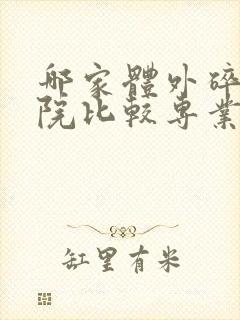 哪家體外碎
院比較專業
缸里有米